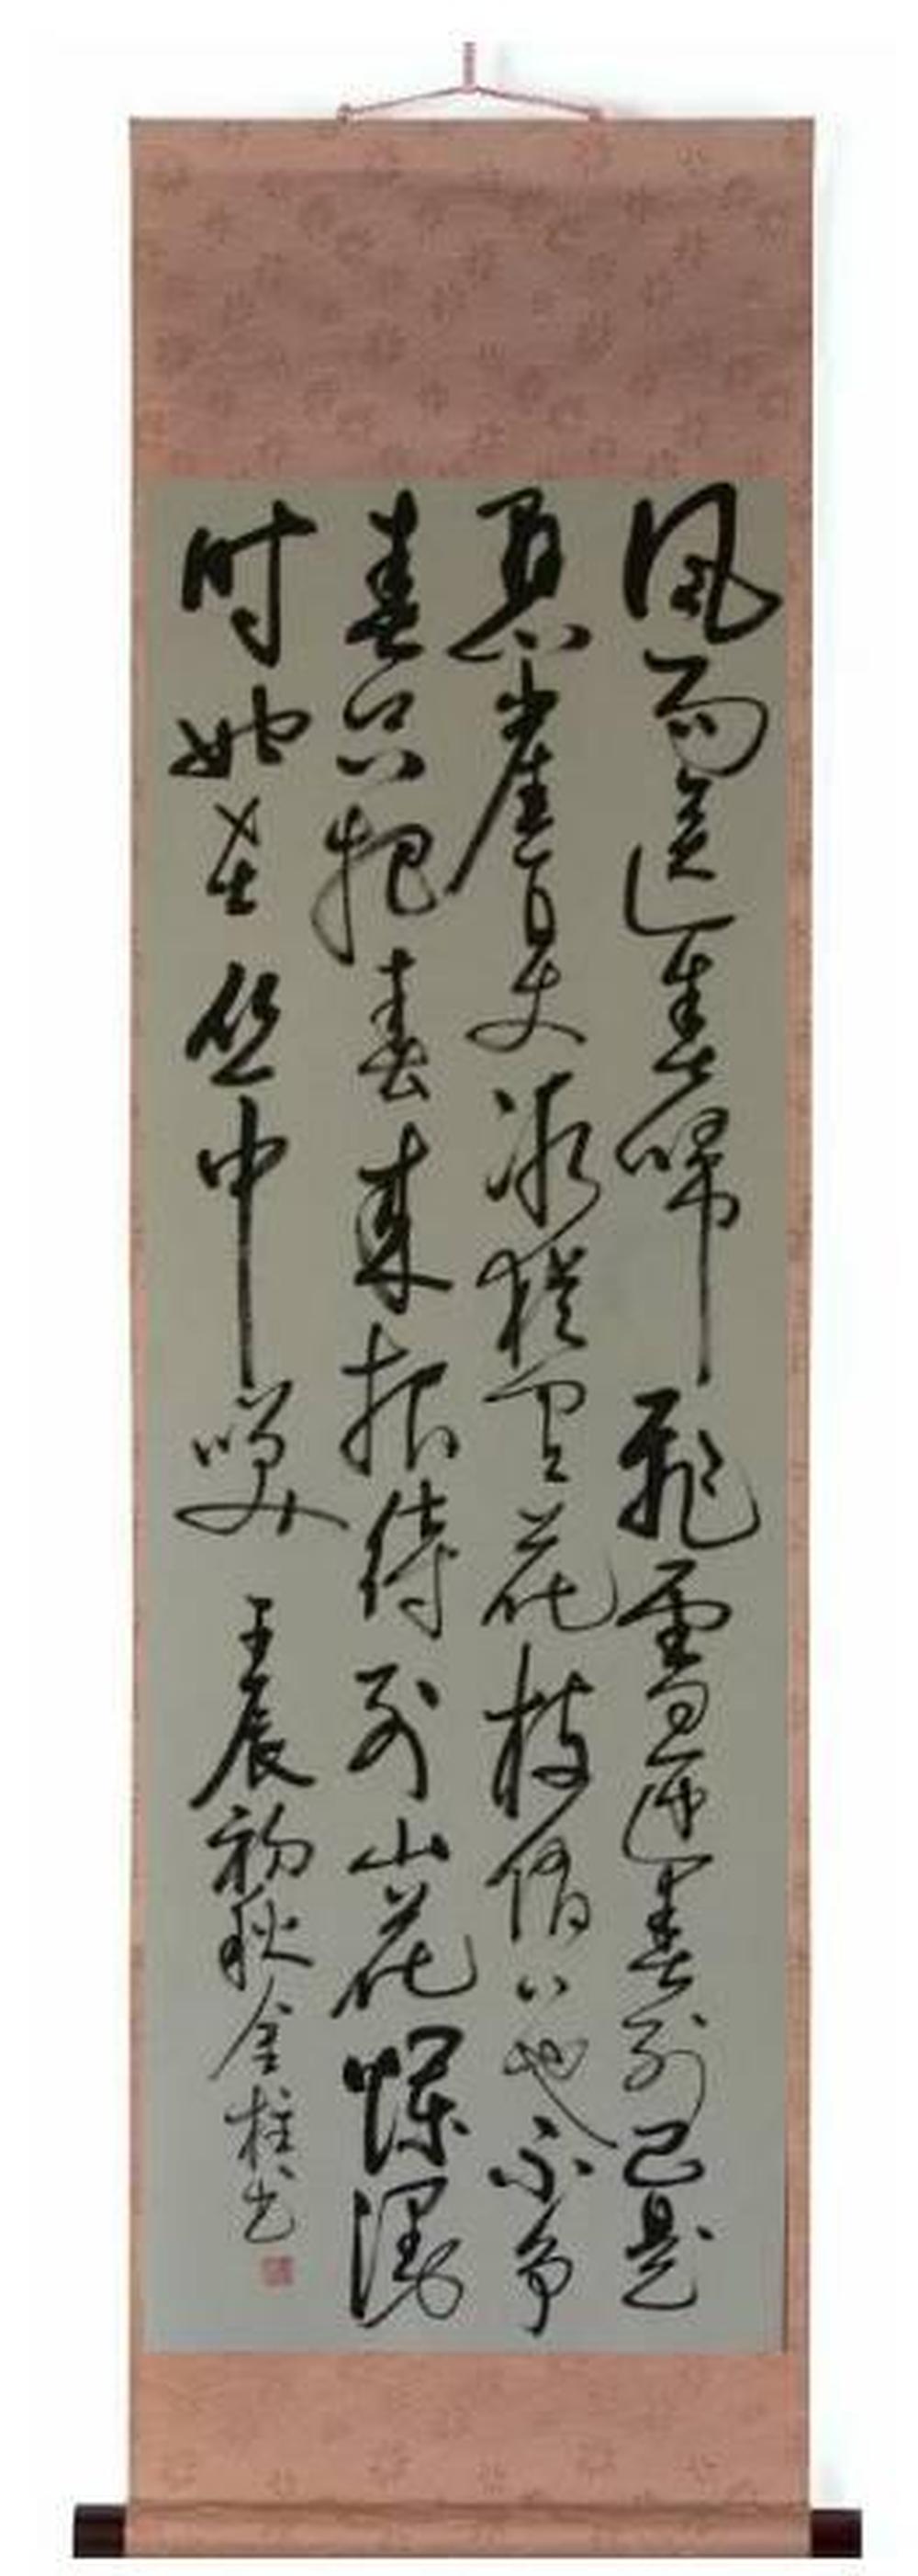 風雨送春归飛雪迎春到已是
悬崖百丈冰犹有花枝俏々也不争
春只把春来报待到山花爛漫
时她在丛中笑 壬辰初秋金柱书